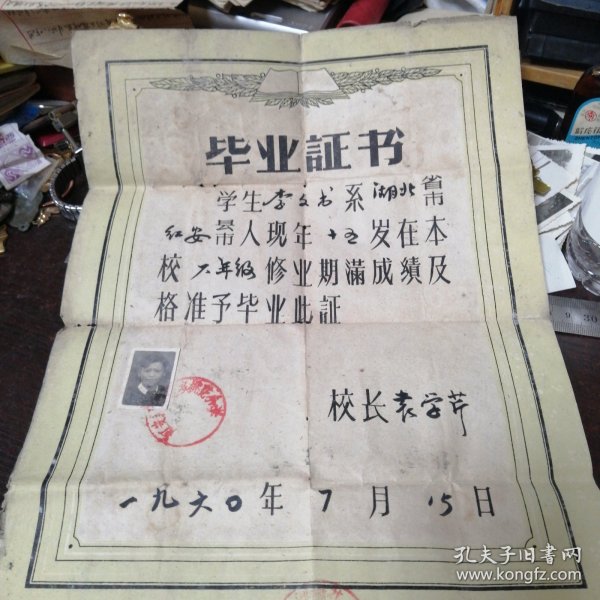 毕业証书
学生李文书系湖北省市
红安县市人现年十五岁在本
校六年级修业期滿成績及
格准予毕业此証
校长袁学芹
一九六〇年7月15日
孔夫子旧书网
www.kongfz.com